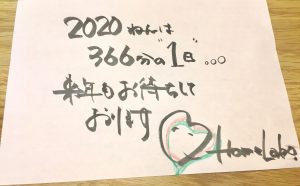 2020 ねんは
366分の"1日"...
来年もお待ちして
おります
HomeLabo.